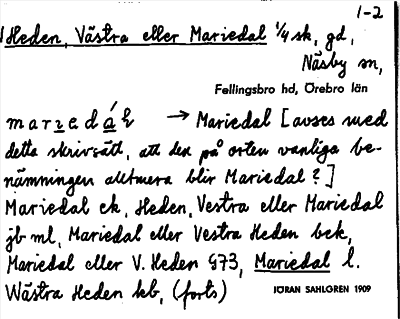 1-2
Heden, Västra eller Mariedal 1/4 sk, gd,
Näsby sn,
Fellingsbro hd, Örebro län
→ Mariedal [avses med
detta skrivsätt, att den på orten vanliga be-
nämningen alltmera blir Mariedal?]
Mariedal ek, Heden, Vestra eller Mariedal
jb ml, Mariedal eller Vestra Heden bek,
Mariedal eller V. Heden §73, Mariedal l.
Wästra Heden kb, (forts)
JÖRAN SAHLGREN 1909